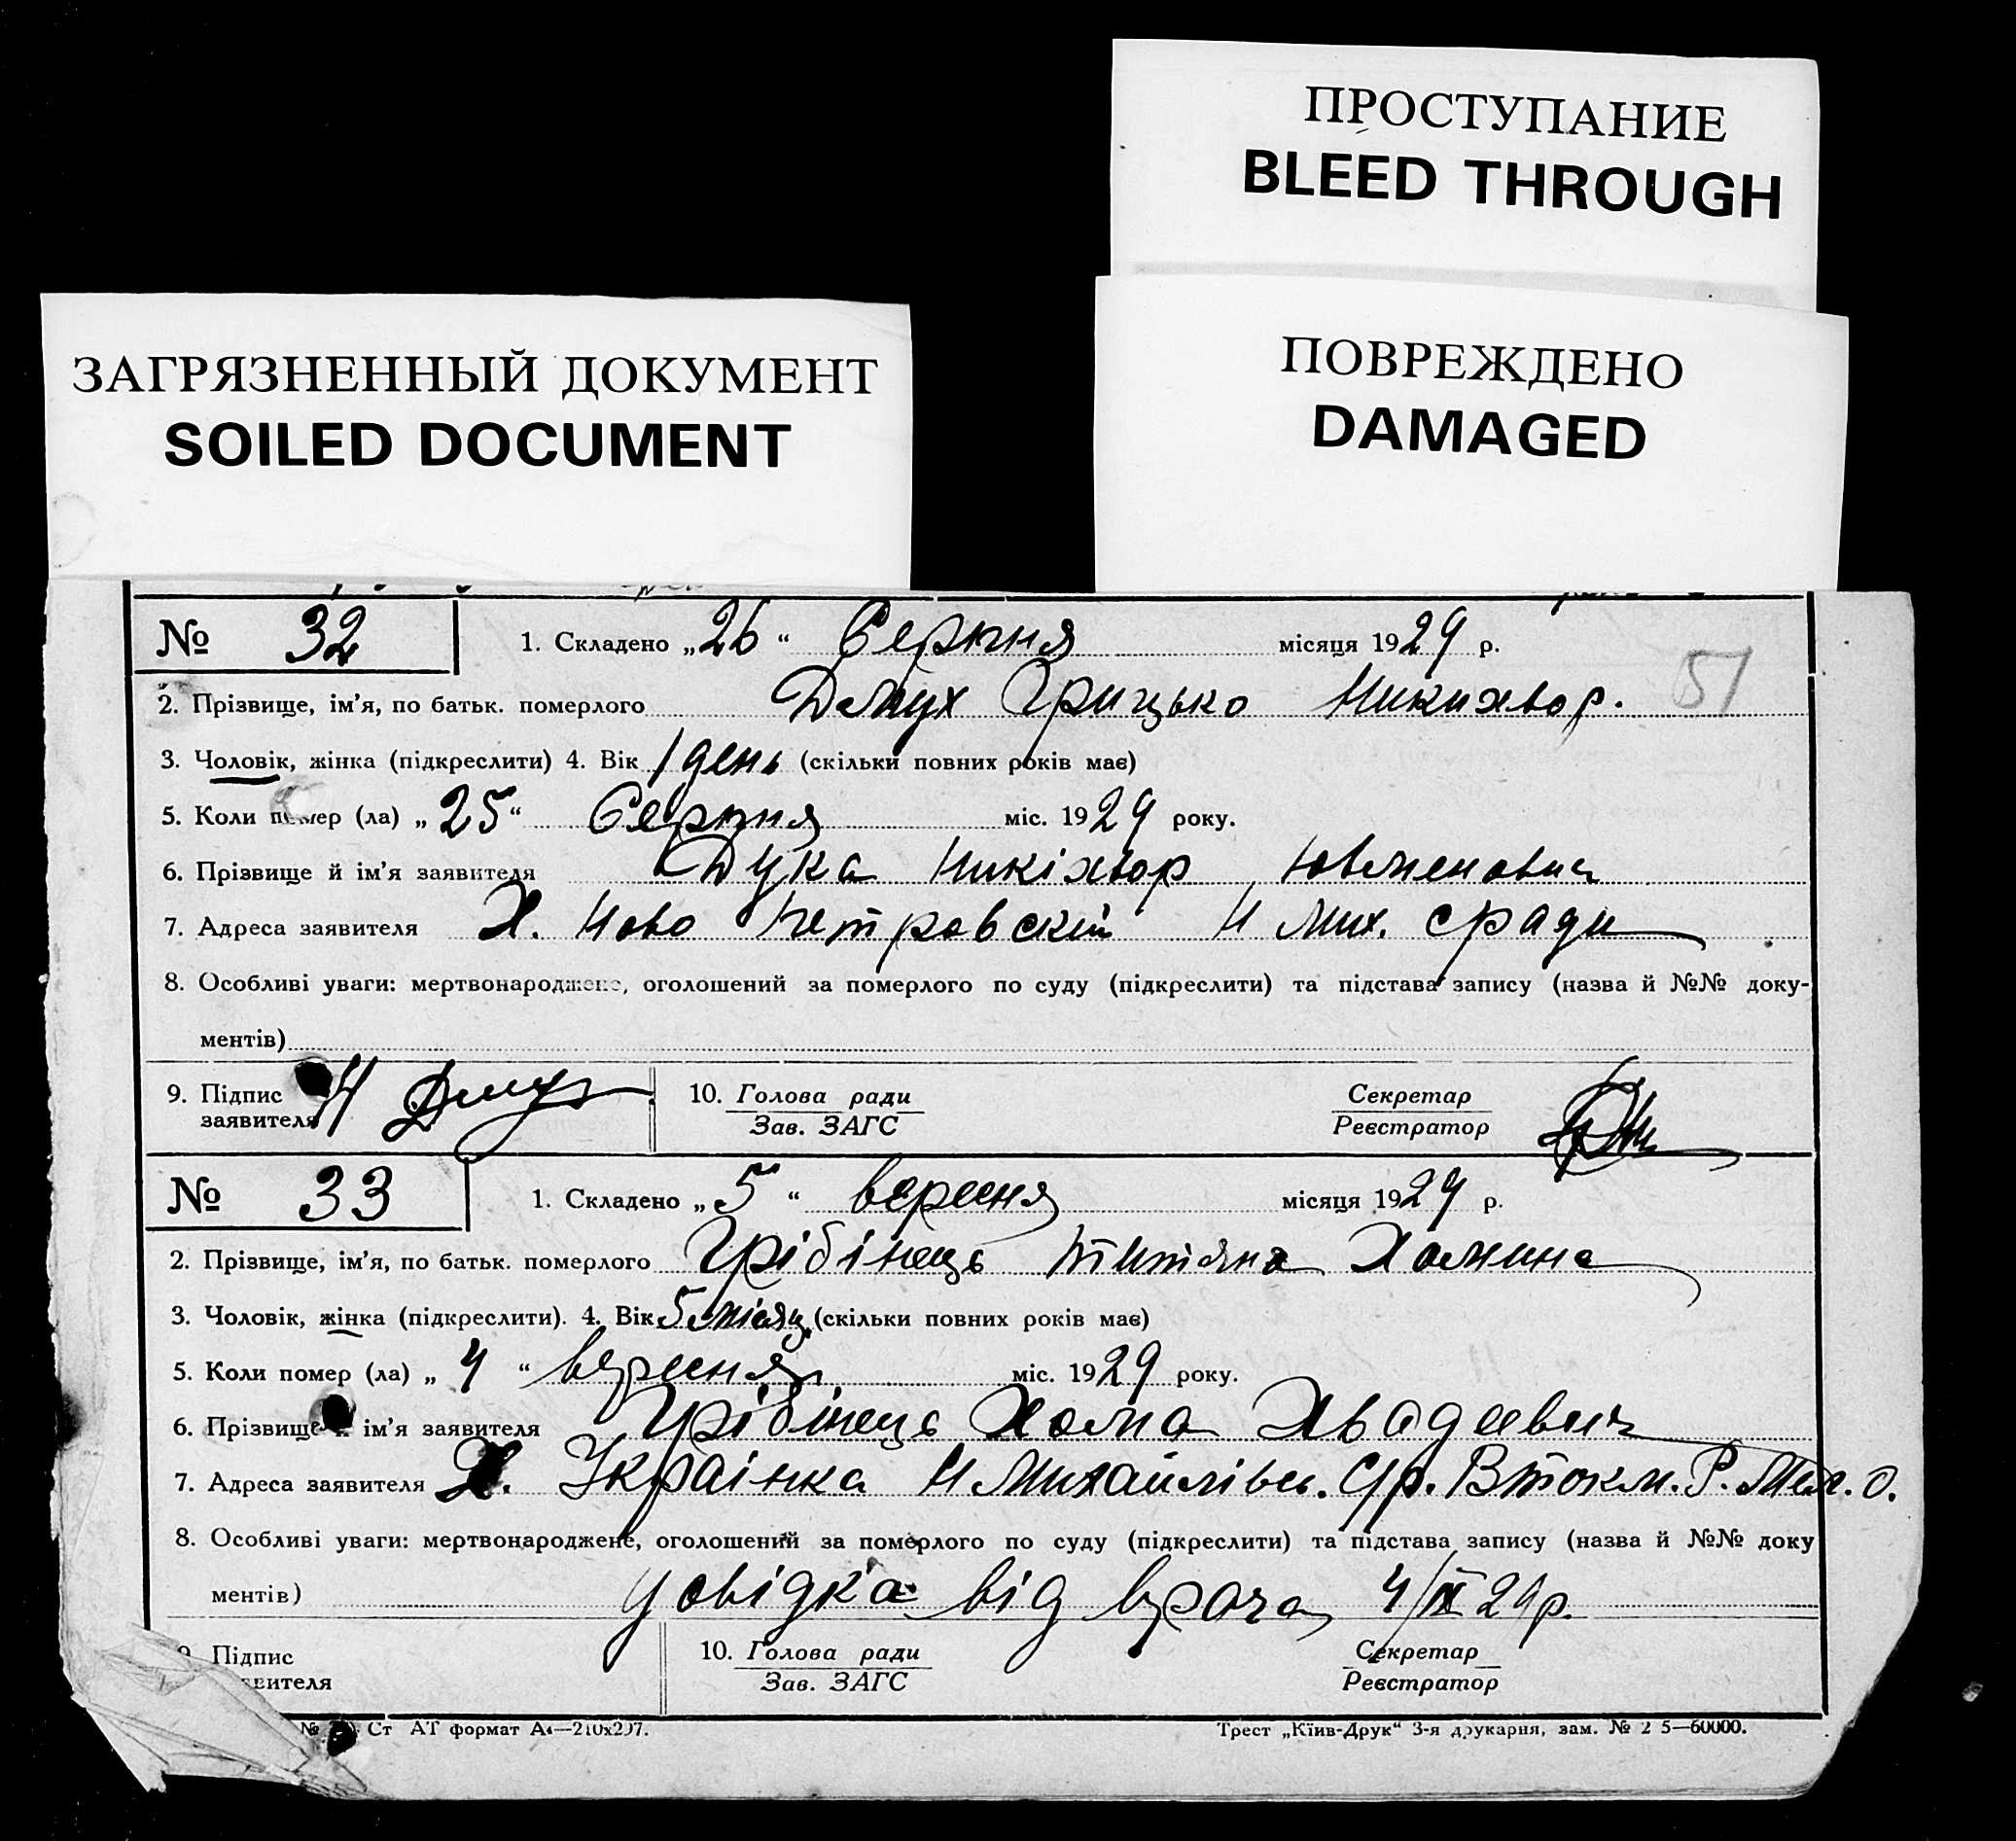 ПРОСТУПАНИЕ
BLEED THROUGH
ЗАГРЯЗНЕННЫЙ ДОКУМЕНТ
SOILED DOCUMENT
ПОВРЕЖДЕНО
DAMAGED
№ 32 1. Складено „26“ Серпня місяця 1929 р.
51
2. Прізвище, ім'я, по батьк. померлого Дмух Грицько Никихвор.
3. Чоловік, жінка (підкреслити) 4. Вік 1 день (скільки повних років має)
5. Коли помер (ла) „25“ Серпня міс. 1929 року.
6. Прізвище й ім'я заявителя Никіхвор
7. Адреса заявителя Х. Ново Петровский Н Мих. сради
8. Особливі уваги: мертвонароджене, оголошений за померлого по суду (підкреслити) та підстава запису (назва й №№ доку-
ментів)
9. Підпис заявителя Н Дмух 10. Голова ради Зав. ЗАГС Секретар Реєстратор
№ 33 1. Складено „5“ вересня місяця 1929 р.
2. Прізвище, ім'я, по батьк. померлого Грібінець Хомина
3. Чоловік, жінка (підкреслити). 4. Вік 5 місяц. (скільки повних років має)
5. Коли помер (ла) „4“ вересня міс. 1929 року.
6. Прізвище ім'я заявителя Грібінець Хома Хвадеевич
7. Адреса заявителя Х. Українка Н Михайлівсь. Ср. В Токм. Р. Мел. о.
8. Особливі уваги: мертвонароджене, оголошений за померлого по суду (підкреслити) та підстава запису (назва й №№ доку
ментів) довідка від врача 4/IX 29 р.
9. Підпис вителя 10. Голова ради Зав. ЗАГС Секретар Реєстратор
№ Ст АТ формат А4—210х297. Трест „Київ-Друк“ 3-я друкарня, зам. № 2 5—60000.